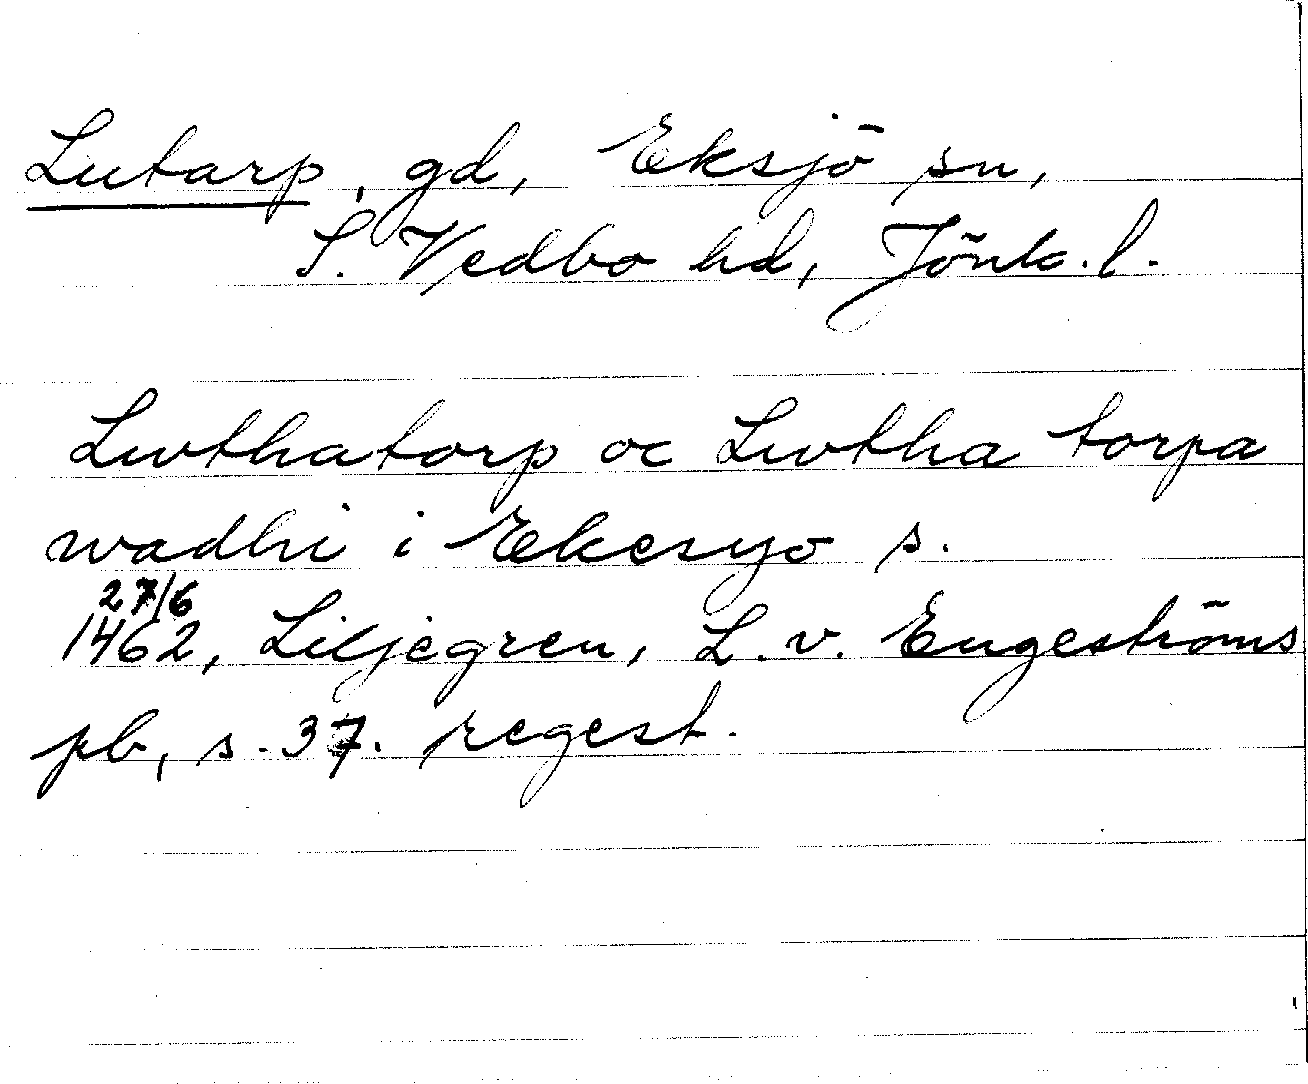 Lutarp, gd, Eksjö sn,
S. Vedbo hd, Jönk. l.
Lwthatorp oc Lwtha torpa
wadhi i Ekesyo s.
27/6
1462, Liljegren, L. v. Engeströms
pb, s. 37. regest.